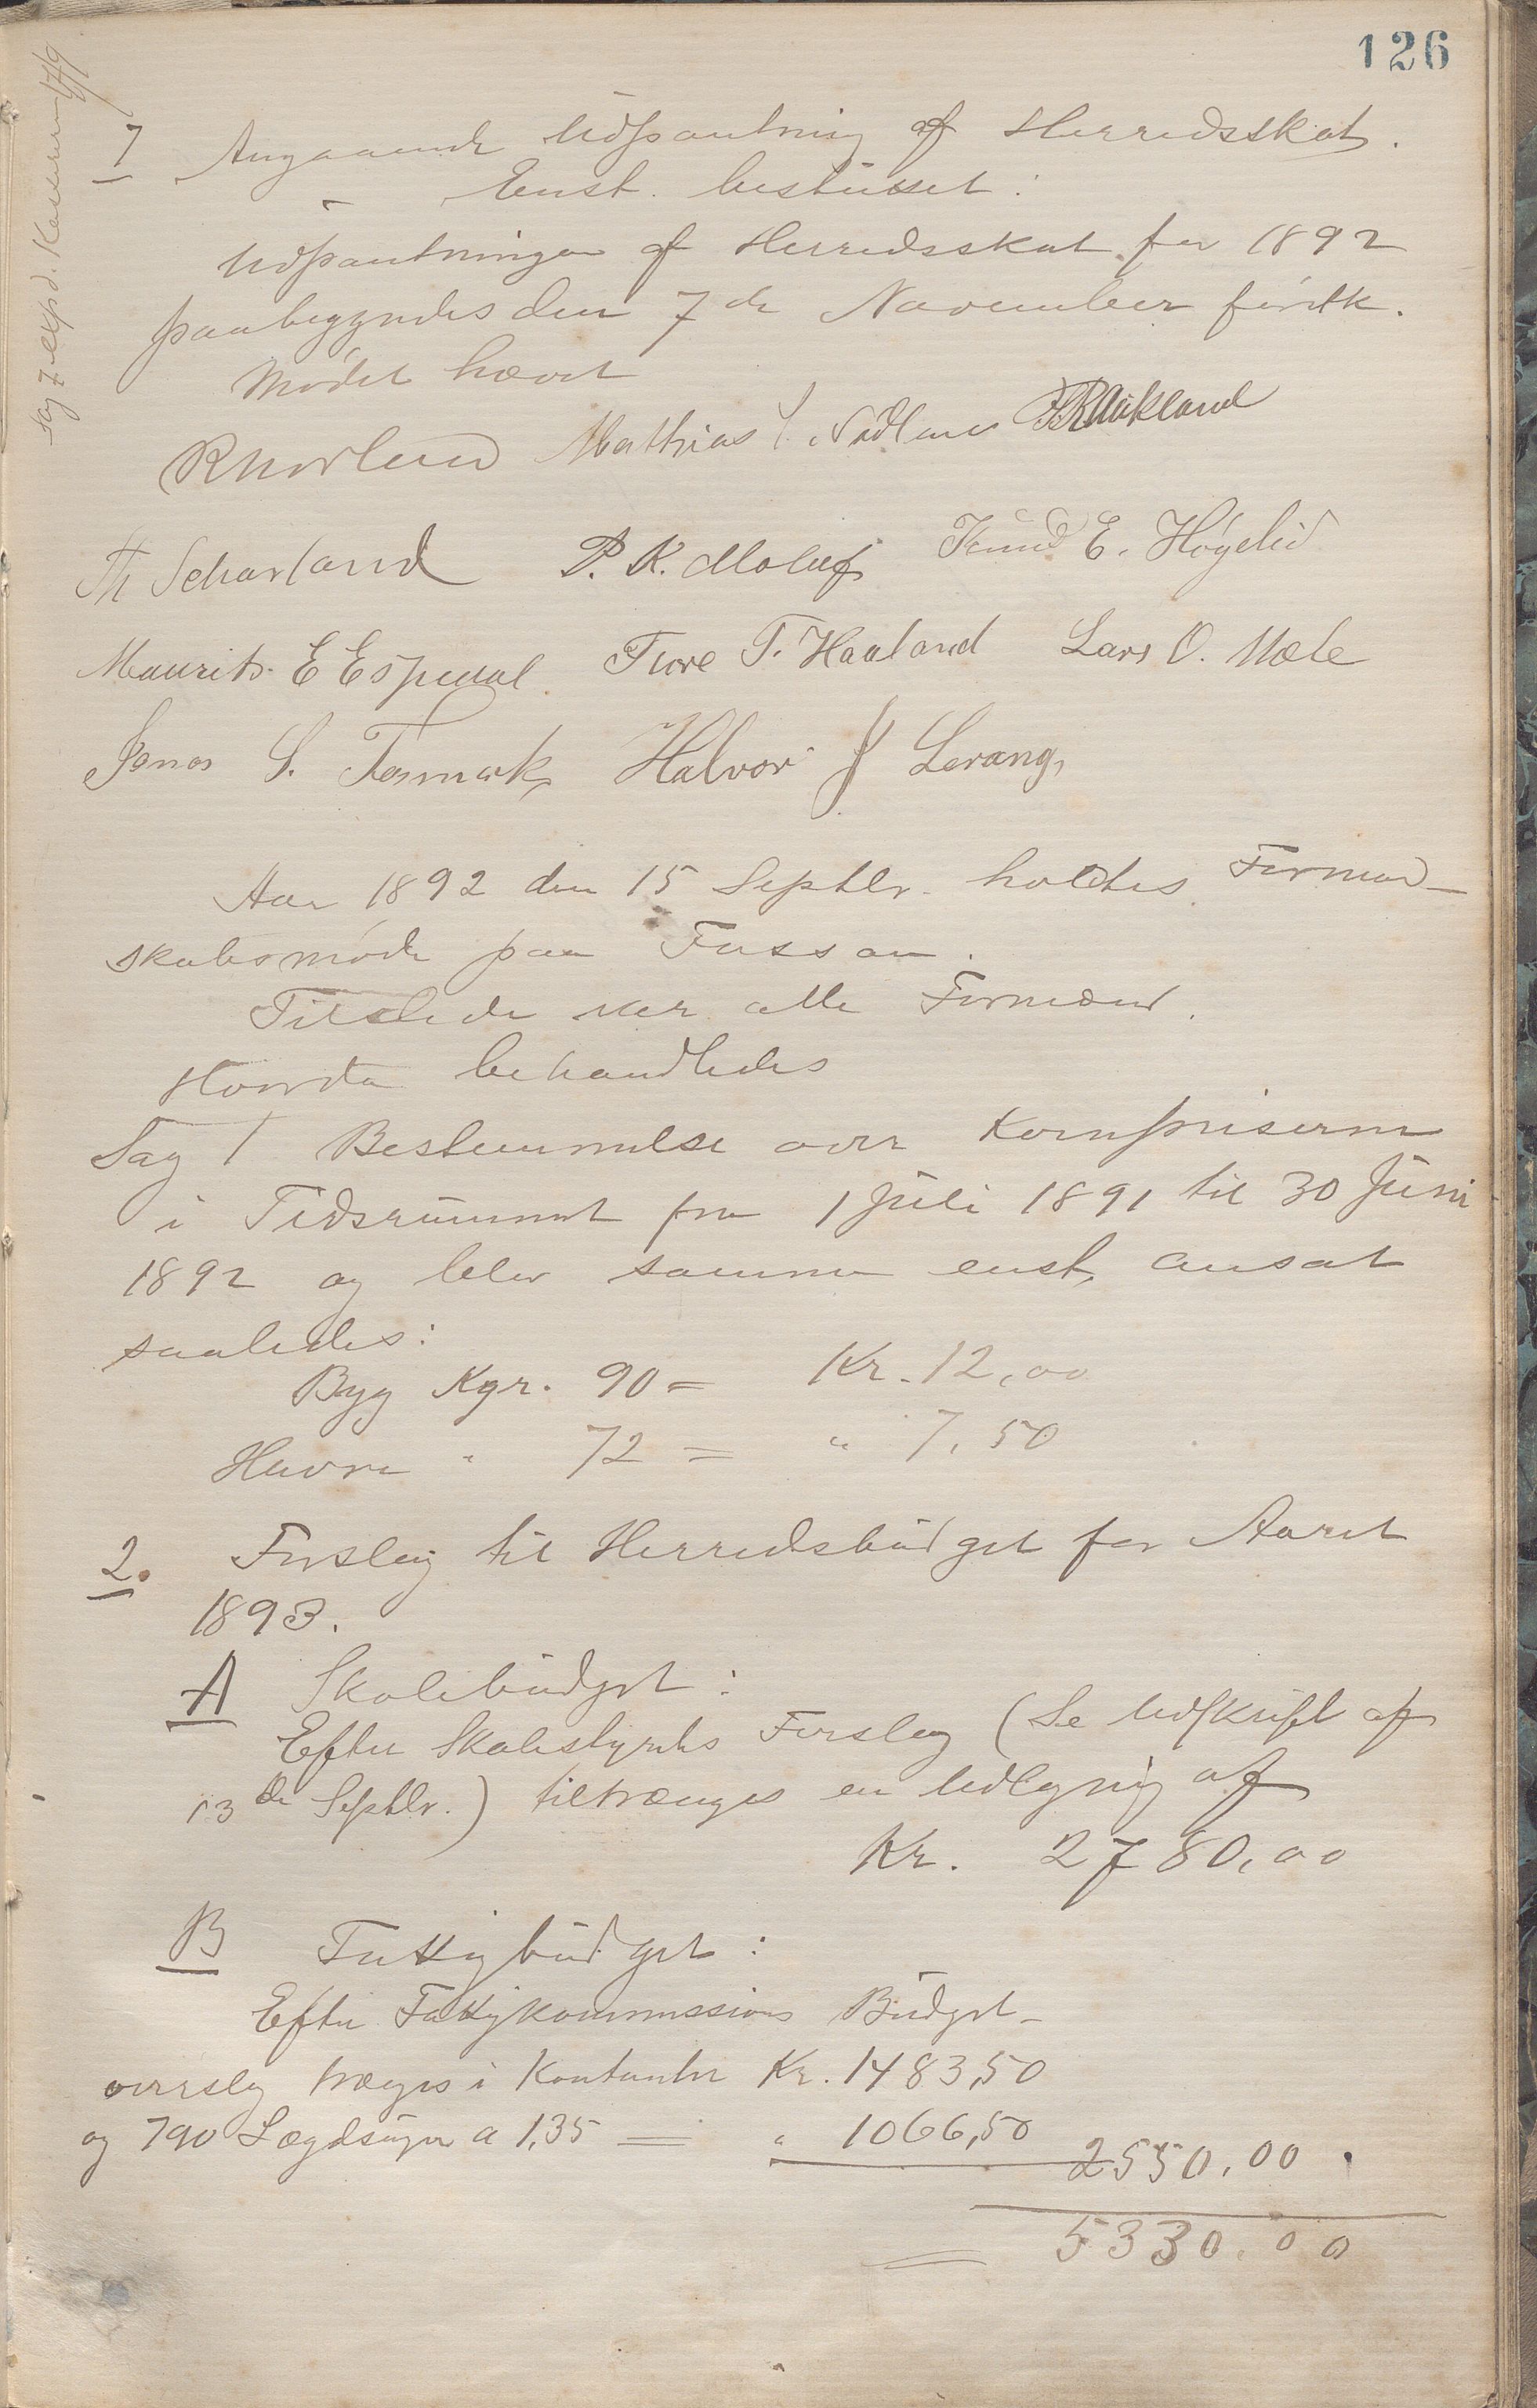 126
Sag 7 expd. Kasseren 17/9
7 Angaaende Udpantning af Herredsskat.
Enst. besluttet:
Udpantningen af Herredsskat for 1892
paabegyndes den 7de November førstk.
Mødet hævet
R Norland Mathias S. Nådland
Th Scharland P. K. Moluf Knud E. Høgelid
Maurits E Espedal Tore T. Haaland Lars O. Mæle
Jonas S. Fosmark Halvor J Levang,
Aar 1892 den 15 Septbr. holdtes Formand-
skabsmøde paa Fossan.
Tilstede var alle Formænd.
Hvorda behandledes
Sag 1 Bestemmelse over Kornpriserne
i Tidsrummet fra 1 Juli 1891 til 30 Juni
1892 og blev samme enst. ansat
saaledes:
Byg Kgr. 90 = Kr. 12,00
Havre " 72 = " 7,50
2. Forslag til Herredsbudget for Aaret
1893.
A Skolebudget:
Efter Skolestyrets Forslag (Se Udskrift af
13de Septbr.) tiltrænges en Udligning af
Kr. 2780,00
B Fattigbudget:
Efter Fattigkommissions Budget-
overslag trænges i Kontanter Kr. 1483,50
og 790 Lægdsuger a 1,35 = " 1066,50
2550,00.
= 5330.00